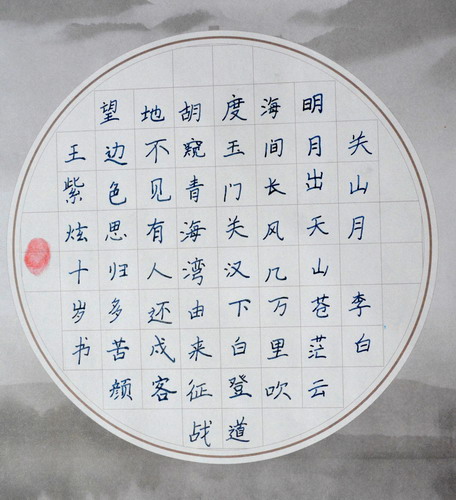 关山月 李白
明月出天山苍茫云
海间长风几万里吹
度玉门关汉下白登道
胡窥青海湾由来征战
地不见有人还戍客
望边色思归多苦颜
王紫炫十岁书